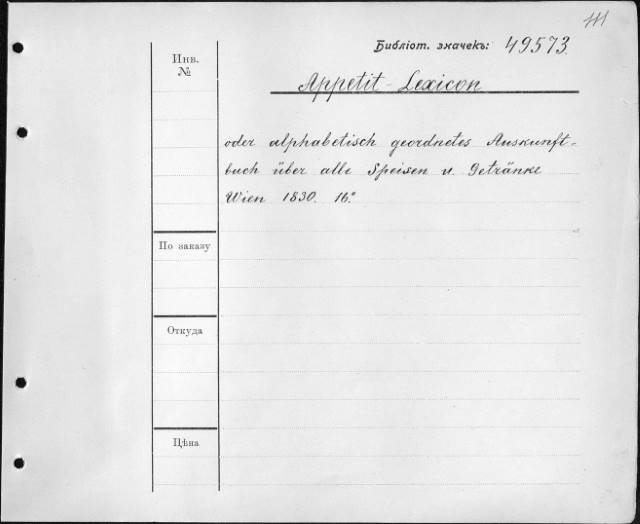 111
Библіот. значекъ: 49573.
Инв.
№
Appetit-Lexicon
oder alphabetisch geordnetes Auskunft-
buch über alle Speisen u. Getränke
Wien 1830. 16º
По заказу
Откуда
Цѣна